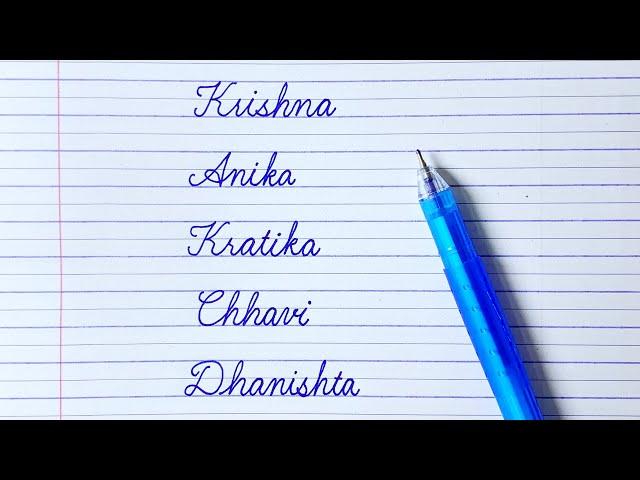 Krishna
Anika
Kratika
Chhavi
Dhanishta